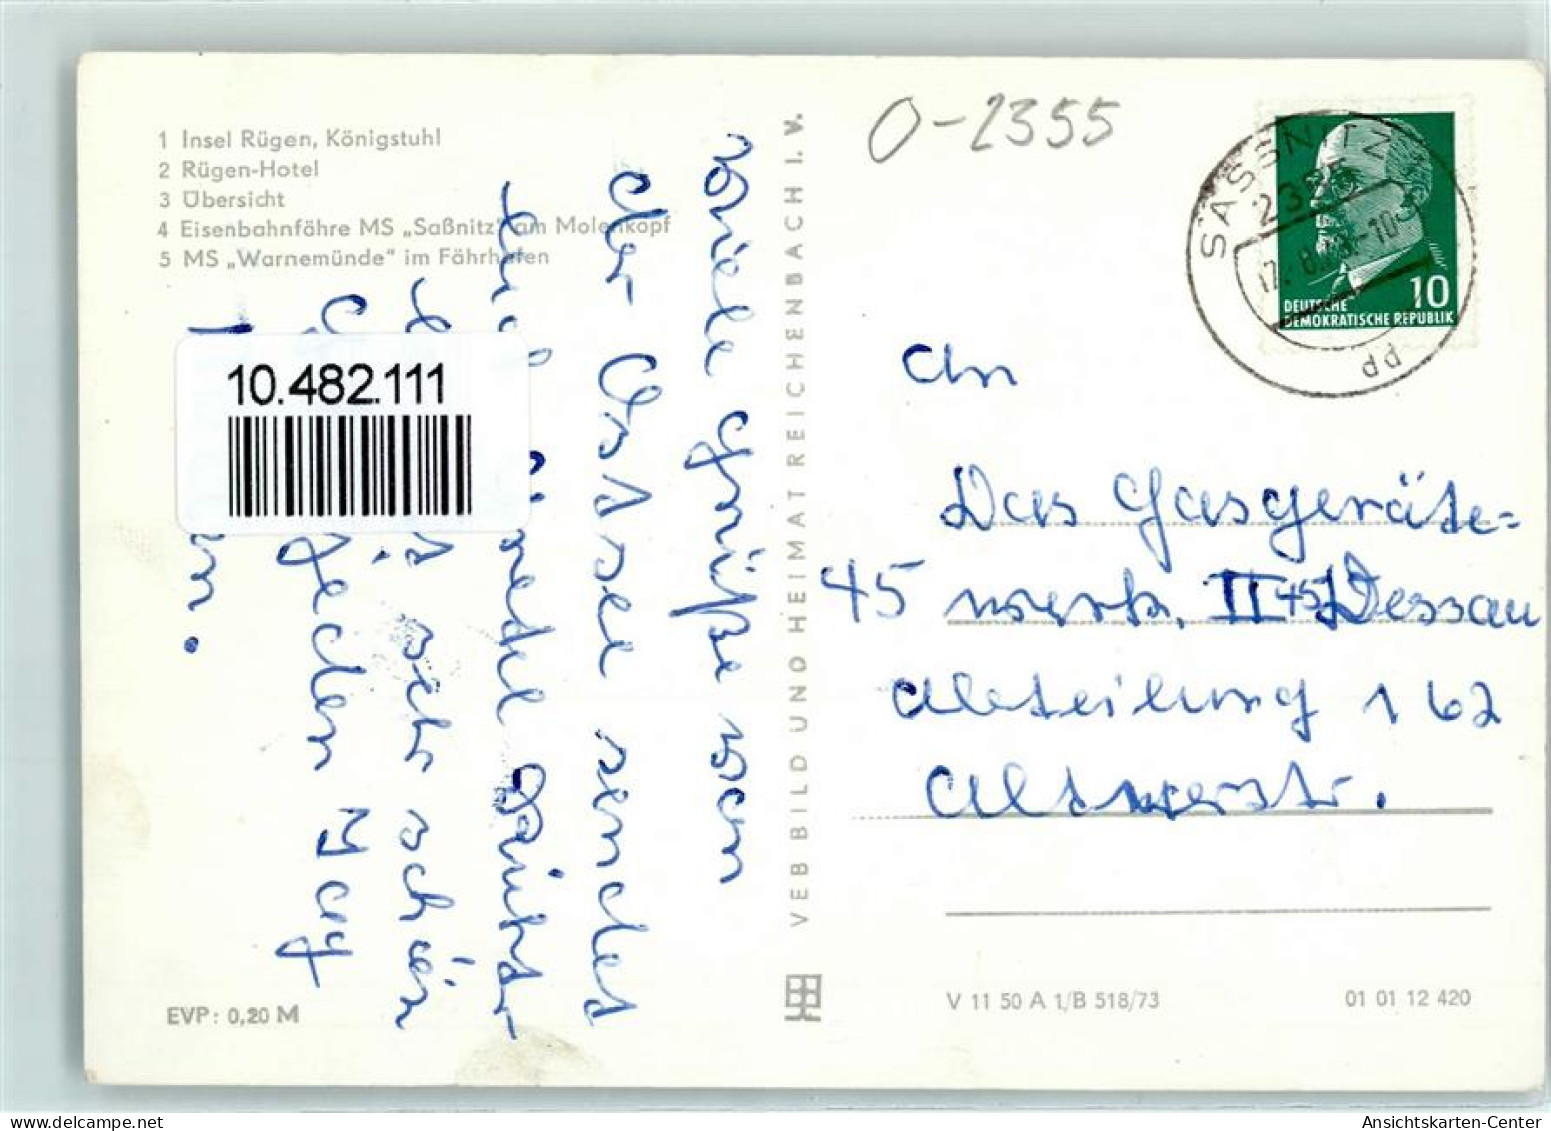 1 Insel Rügen, Königstuhl
2 Rügen-Hotel
3 Übersicht
4 Eisenbahnfähre MS „Saßnitz“ am Molenkopf
5 MS „Warnemünde“ im Fährhafen
10.482.111
Viele Grüße von
der Ostsee sendet
sehr schön
jeden Tag
EVP: 0,20 M
VEB BILD UND HEIMAT REICHENBACH I. V.
O-2355
SASSNITZ
2355
PP
10
DEUTSCHE
DEMOKRATISCHE REPUBLIK
An
Das Gasgeräte=
45 werk. II 45 Dessau
Abteilung 162
V 11 50 A 1/B 518/73
01 01 12 420
Ansichtskarten-Center